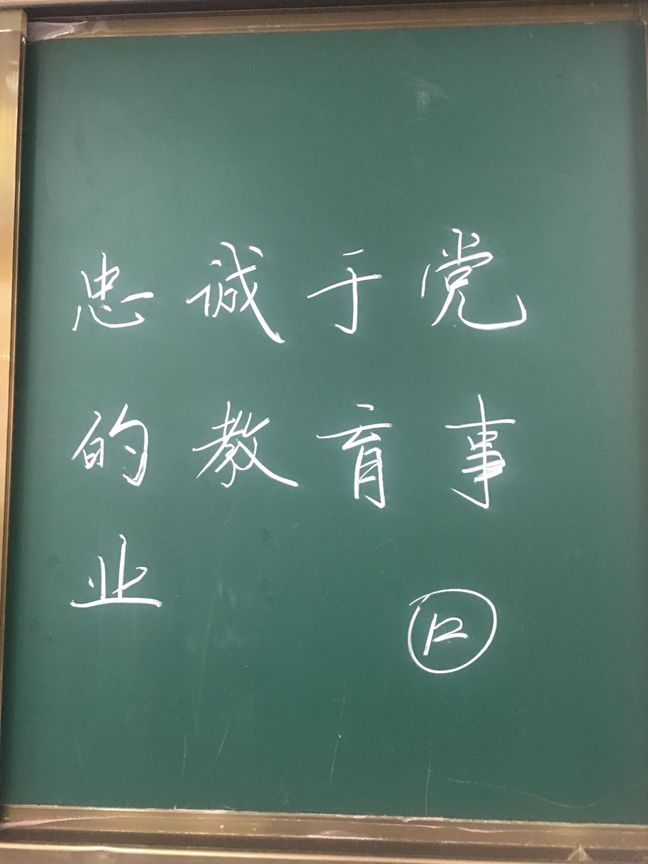 忠诚于党
的教育事
业
12